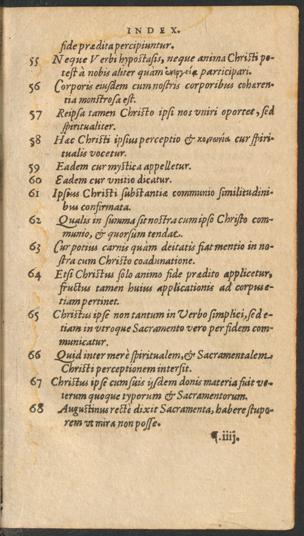 INDEX.
fide prædita percipiuntur.
55 Neque Verbi hypostasis, neque anima Christi po-
test à nobis aliter quam ἐνεργείᾳ participari.
56 Corporis eiusdem cum nostris corporibus cohæren-
tia monstrosa est.
57 Reipsa tamen Christo ipsi nos vniri oportet, sed
spiritualiter.
58 Hæc Christi ipsius perceptio & κοινωνία cur spiri-
tualis vocetur.
59 Eadem cur mystica appelletur.
60 Eadem cur vnitio dicatur.
61 Ipsius Christi substantiæ communio similitudini-
bus confirmata.
62 Qualis in summa sit nostra cum ipso Christo com-
munio, & quorsum tendat.
63 Cur potius carnis quàm deitatis fiat mentio in no-
stra cum Christo coadunatione.
64 Etsi Christus solo animo fide prædito applicetur,
fructus tamen huius applicationis ad corpus e-
tiam pertinet.
65 Christus ipse non tantum in Verbo simplici, sed e-
tiam in vtroque Sacramento vero per fidem com-
municatur.
66 Quid inter merè spiritualem, & Sacramentalem
Christi perceptionem intersit.
67 Christus ipse cum suis ijsdem donis materia fuit ve-
terum quoque typorum & Sacramentorum.
68 Augustinus rectè dixit Sacramenta, habere stupo-
rem vt mira non posse.
¶.iiij.